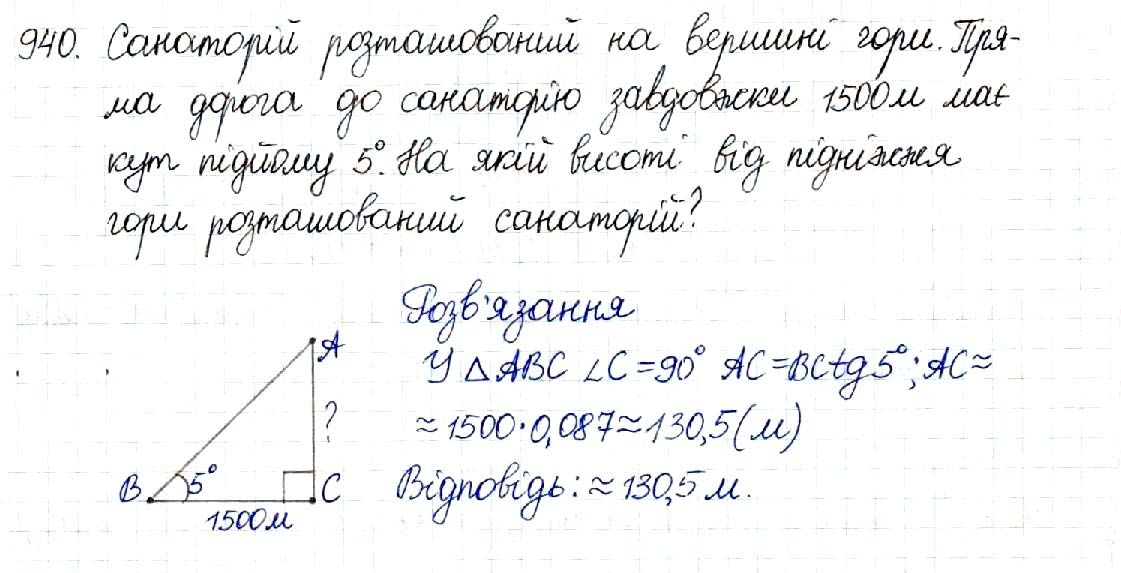 940. Санаторій розташований на вершині гори. Пря-
ма дорога до санаторію завдовжки 1500м має
кут підйому 5°. На якій висоті від підніжжя
гори розташований санаторій?
Розв'язання
У △ABC ∠C=90° AC=BCtg5°; AC≈
≈1500·0,087≈130,5(м)
Відповідь: ≈130,5м.
A
?
B 5° C
1500м